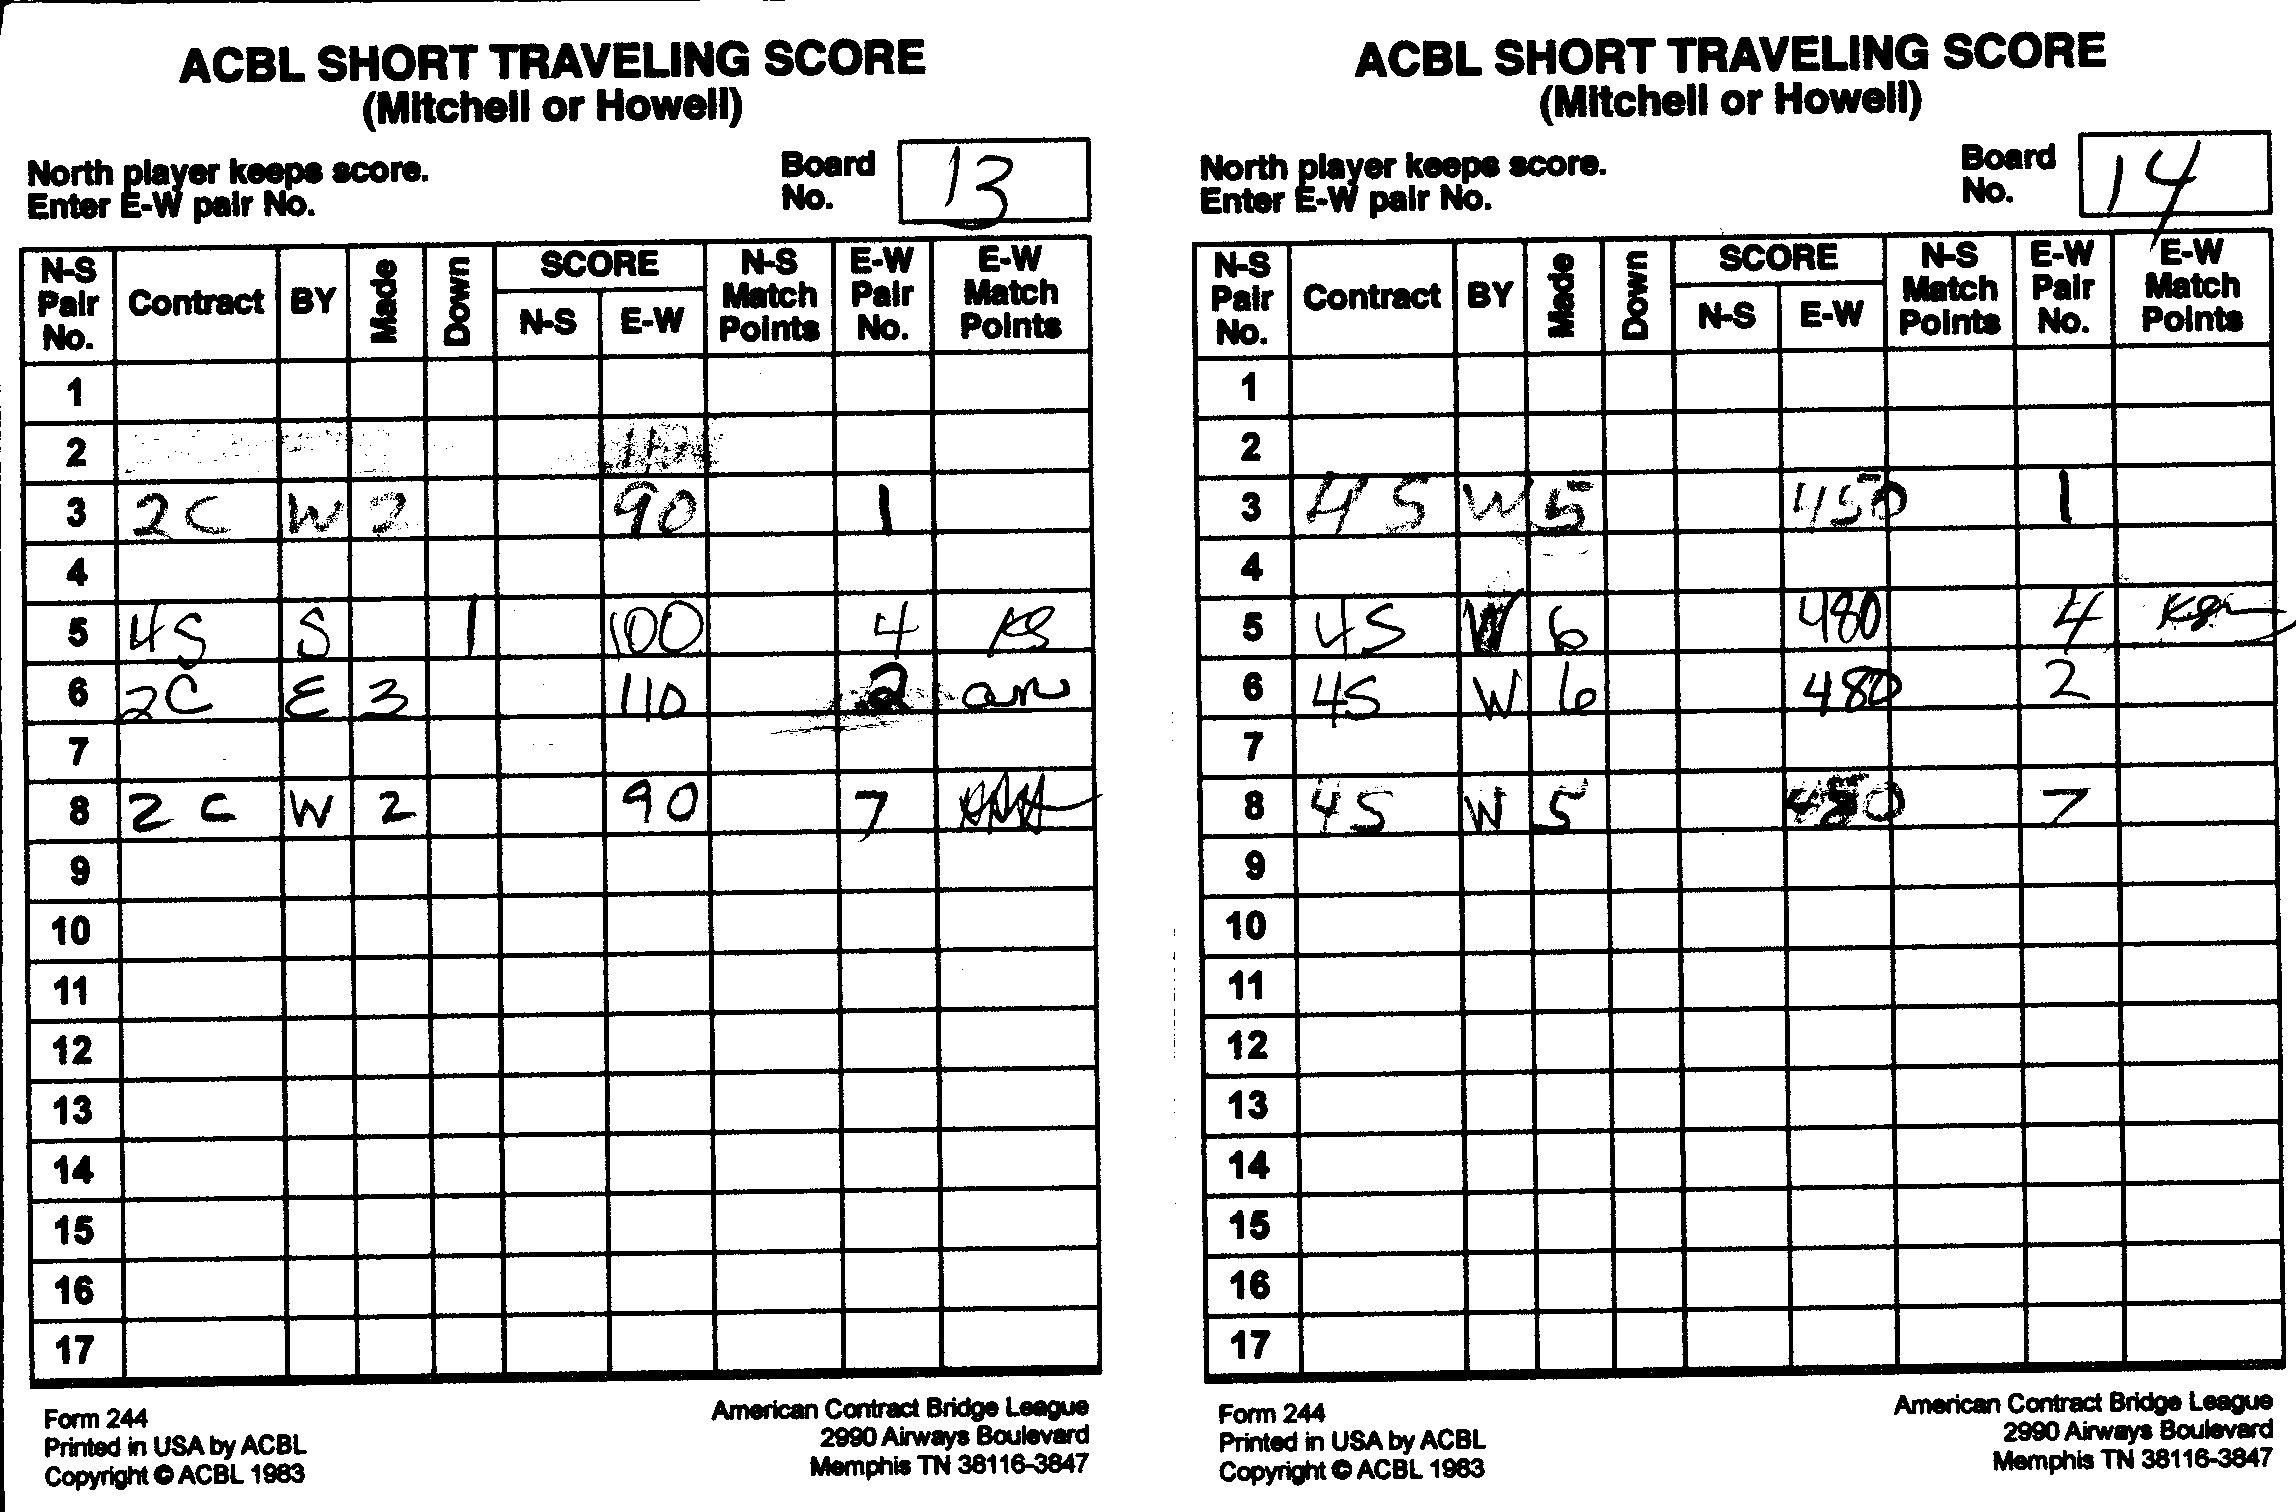 ACBL SHORT TRAVELING SCORE
(Mitchell or Howell)
North player keeps score.
Enter E-W pair No.
Board No. 13
N-S Pair No. Contract BY Made Down SCORE N-S E-W N-S Match Points E-W Pair No. E-W Match Points
1
2
3 2C W 2 90 1
4
5 4S S 1 100 4 KS
6 2C E 3 110 2
7
8 2C W 2 90 7
9
10
11
12
13
14
15
16
17
Form 244
Printed in USA by ACBL
Copyright © ACBL 1983
American Contract Bridge League
2990 Airways Boulevard
Memphis TN 38116-3847
ACBL SHORT TRAVELING SCORE
(Mitchell or Howell)
North player keeps score.
Enter E-W pair No.
Board No. 14
N-S Pair No. Contract BY Made Down SCORE N-S E-W N-S Match Points E-W Pair No. E-W Match Points
1
2
3 4S W 5 450 1
4
5 4S W 6 480 4
6 4S W 6 480 2
7
8 4S W 5 7
9
10
11
12
13
14
15
16
17
Form 244
Printed in USA by ACBL
Copyright © ACBL 1983
American Contract Bridge League
2990 Airways Boulevard
Memphis TN 38116-3847